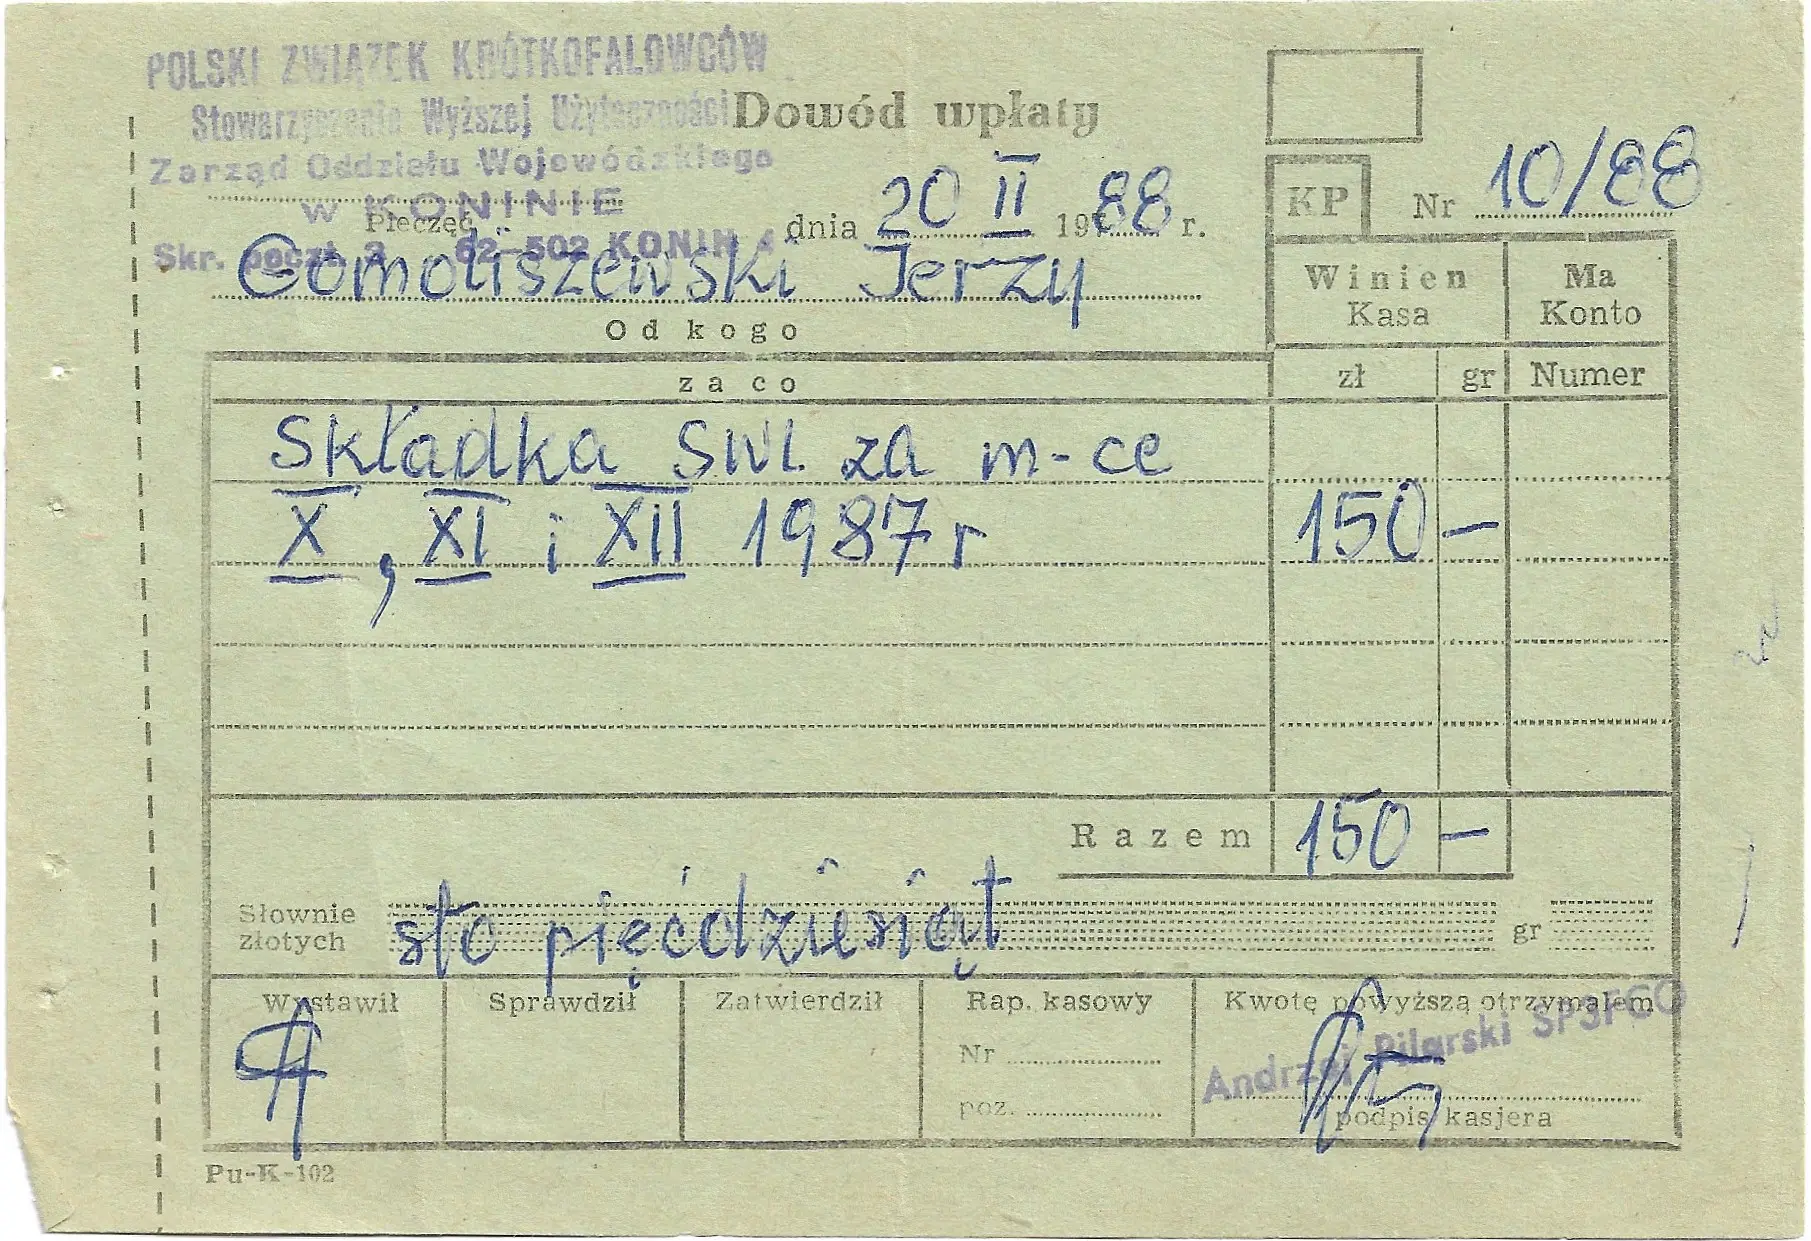 POLSKI ZWIĄZEK KRÓTKOFALOWCÓW
Stowarzyszenie Wyższej Użyteczności
Dowód wpłaty
Zarząd Oddziału Wojewódzkiego
w KONINIE
Pieczęć
dnia 20 II 1988 r.
KP Nr 10/88
Skr. poczt. 3 62-502 KONIN 4
Gomoliszewski Jerzy
Od kogo
Winien Kasa
Ma Konto
za co
zł gr Numer
Składka SWL za m-ce
X, XI i XII 1987 r 150 -
Razem 150 -
Słownie złotych sto pięćdziesiąt gr
Wystawił Sprawdził Zatwierdził Rap. kasowy Kwotę powyższą otrzymałem
Nr
Andrzej Pilarski SP3FCO
poz.
podpis kasjera
Pu-K-102